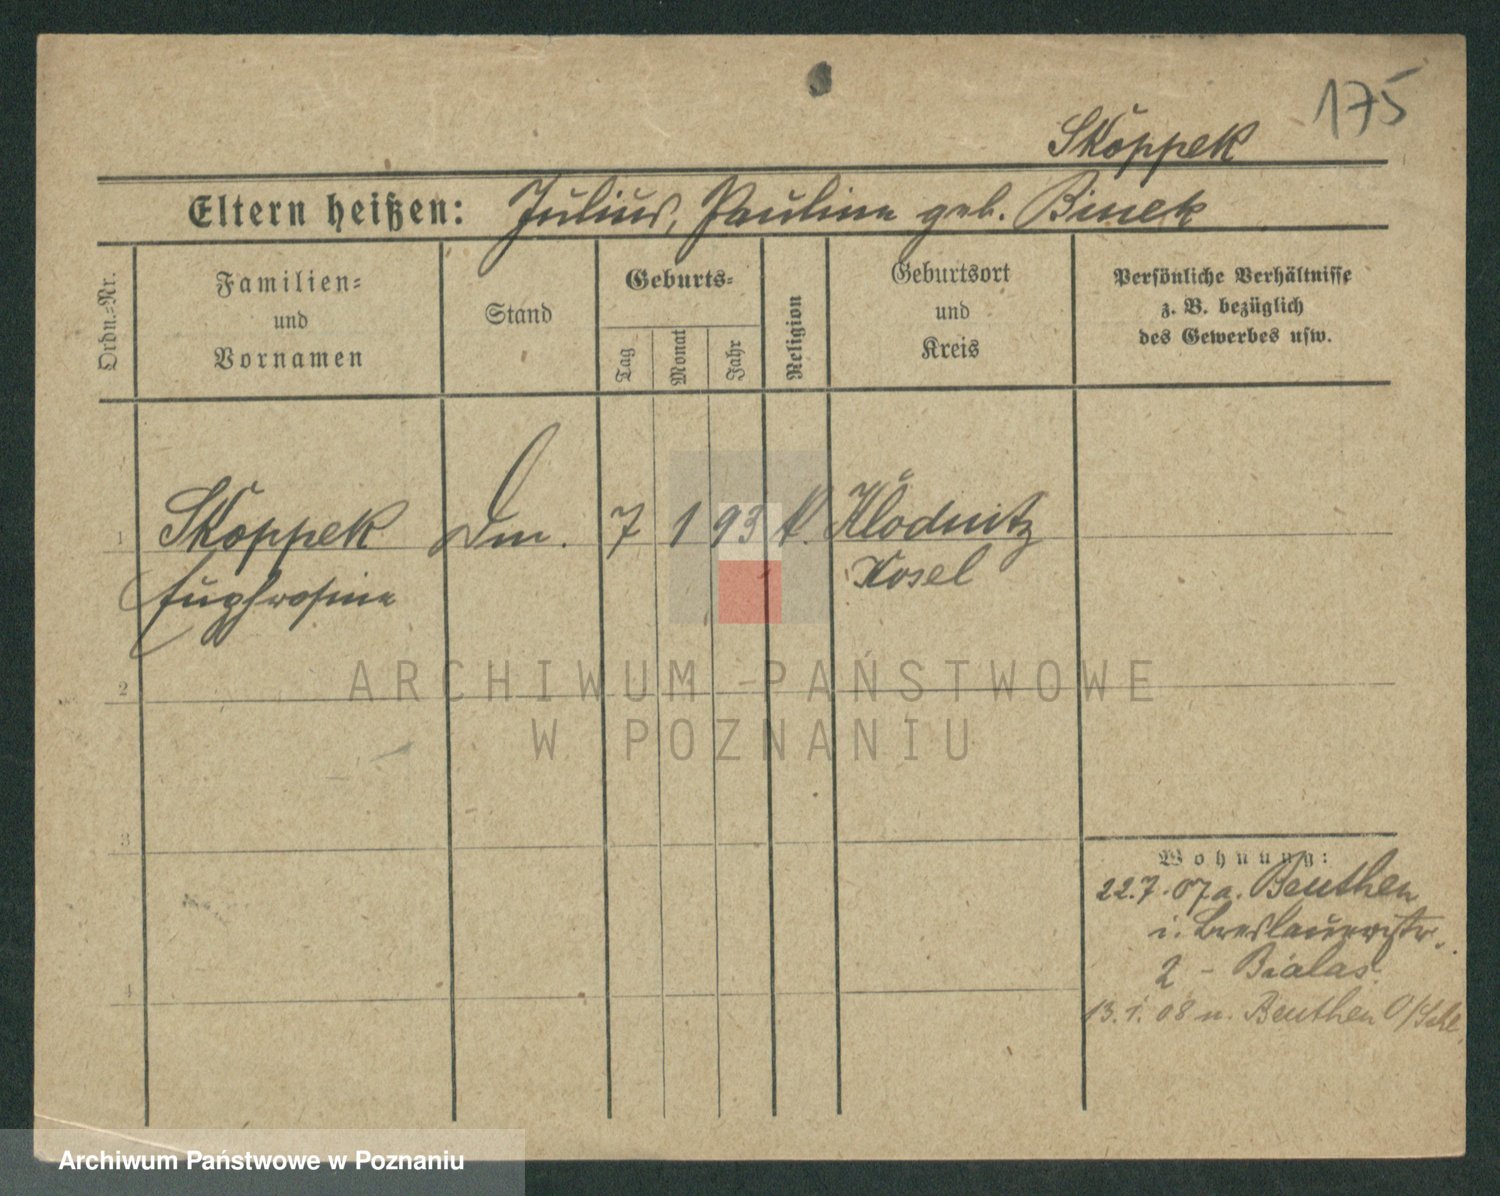 175
Skoppek
Eltern heißen: Julius, Pauline geb. Binek
Ordn.=Nr.
Familien=
und
Vornamen
Stand
Geburts=
Tag
Monat
Jahr
Religion
Geburtsort
und
Kreis
Persönliche Verhältnisse
z. B. bezüglich
des Gewerbes usw.
1 Skoppek Dm. 7 1 93 k. Klodnitz
Eüphrosine Kosel
2
3
4
Wohnung:
22.7.07 a. Beuthen
i. Breslauerstr.
2 - Bialas
13.1.08 n. Beuthen O/Schl
ARCHIWUM PAŃSTWOWE
W POZNANIU
Archiwum Państwowe w Poznaniu